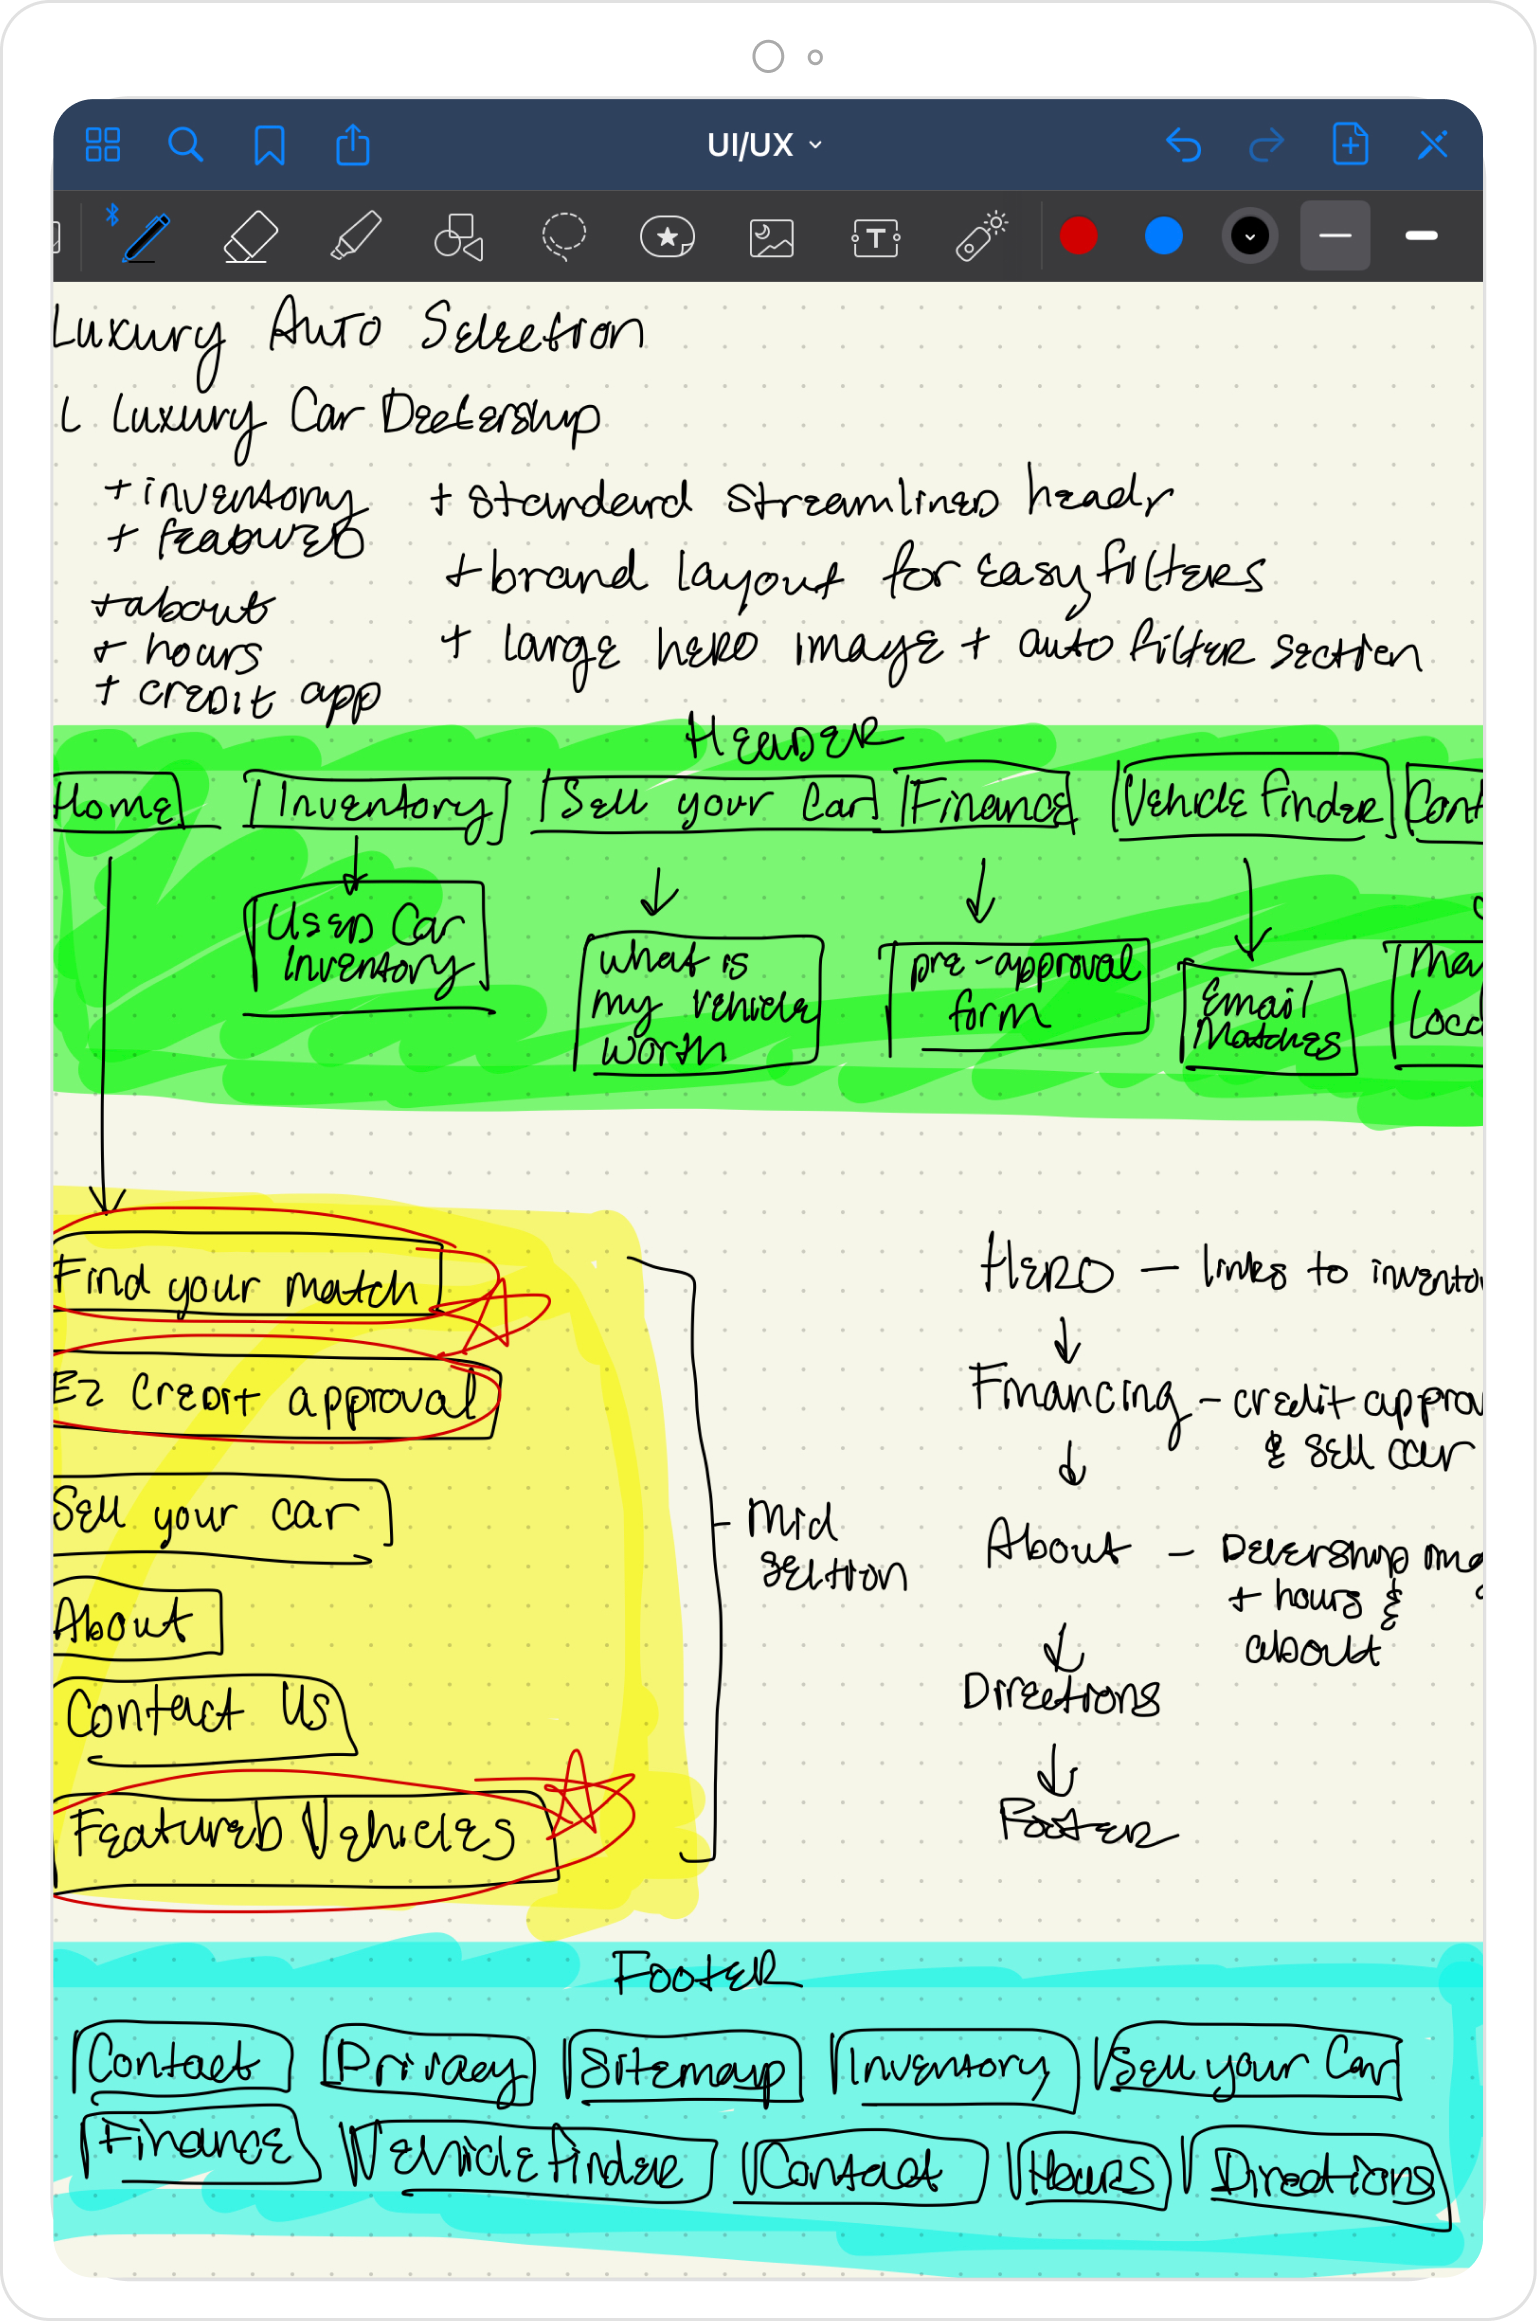 UI/UX
Luxury Auto Selection
Luxury Car Dealership
+ inventory
+ featured
+ about
+ hours
+ credit app
+ standard streamlined headr
+ brand layout for easy filters
+ large hero image + auto filter section
HEADER
Home
Inventory
Sell your Car
Finance
Vehicle Finder
Cont
Used Car
Inventory
what is
my vehicle
worth
pre-approval
form
Email
Matches
Find your match
EZ Credit approval
Sell your car
About
Contact Us
Featured Vehicles
Mid
Section
HERO - links to invento
Financing - credit approv
& sell car
About - Dealership
+ hours &
about
Directions
Footer
FOOTER
Contact
Privacy
Sitemap
Inventory
Sell your Car
Finance
Vehicle Finder
Contact
Hours
Directions